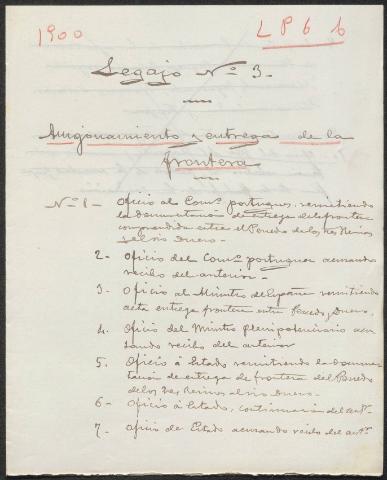 1900
LP6 b
Legajo Nº 3.
Amojonamiento y entrega de la
frontera
Nº 1 - Oficio al Comº portugues, remitiendo
la documentacion de entrega de la frontera
comprendida entre el Penedo de los tres Reinos
y el rio Duero.-
2.- Oficio del Comº portugues acusando
recibo del anterior.-
3. Oficio al Ministro de España remitiendo
acta entrega frontera entre Penedo y Duero.
4. Oficio del Ministro plenipotenciario acu-
sando recibo del anterior
5. Oficio á Estado remitiendo la documen-
tacion de entrega de frontera del Penedo
de los tres Reinos al rio Duero.-
6- Oficio á Estado, continuacion del antr.
7. Oficio de Estado acusando recibo del antr.